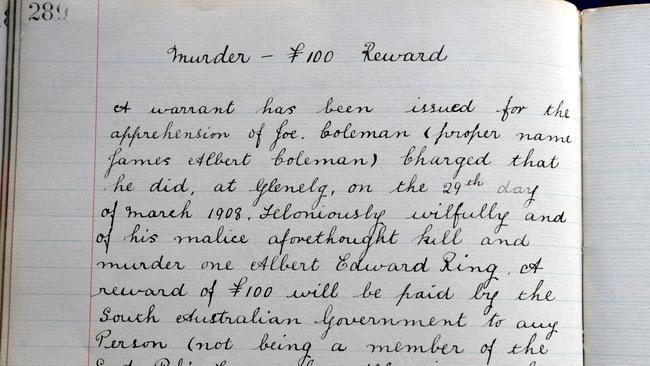 289
Murder – £100 Reward
A warrant has been issued for the
apprehension of Joe. Coleman (proper name
James Albert Coleman) Charged that
he did, at Glenelg, on the 29th day
of March 1908, Feloniously wilfully and
of his malice aforethought kill and
murder one Albert Edward Ring. A
reward of £100 will be paid by the
South Australian Government to any
Person (not being a member of the